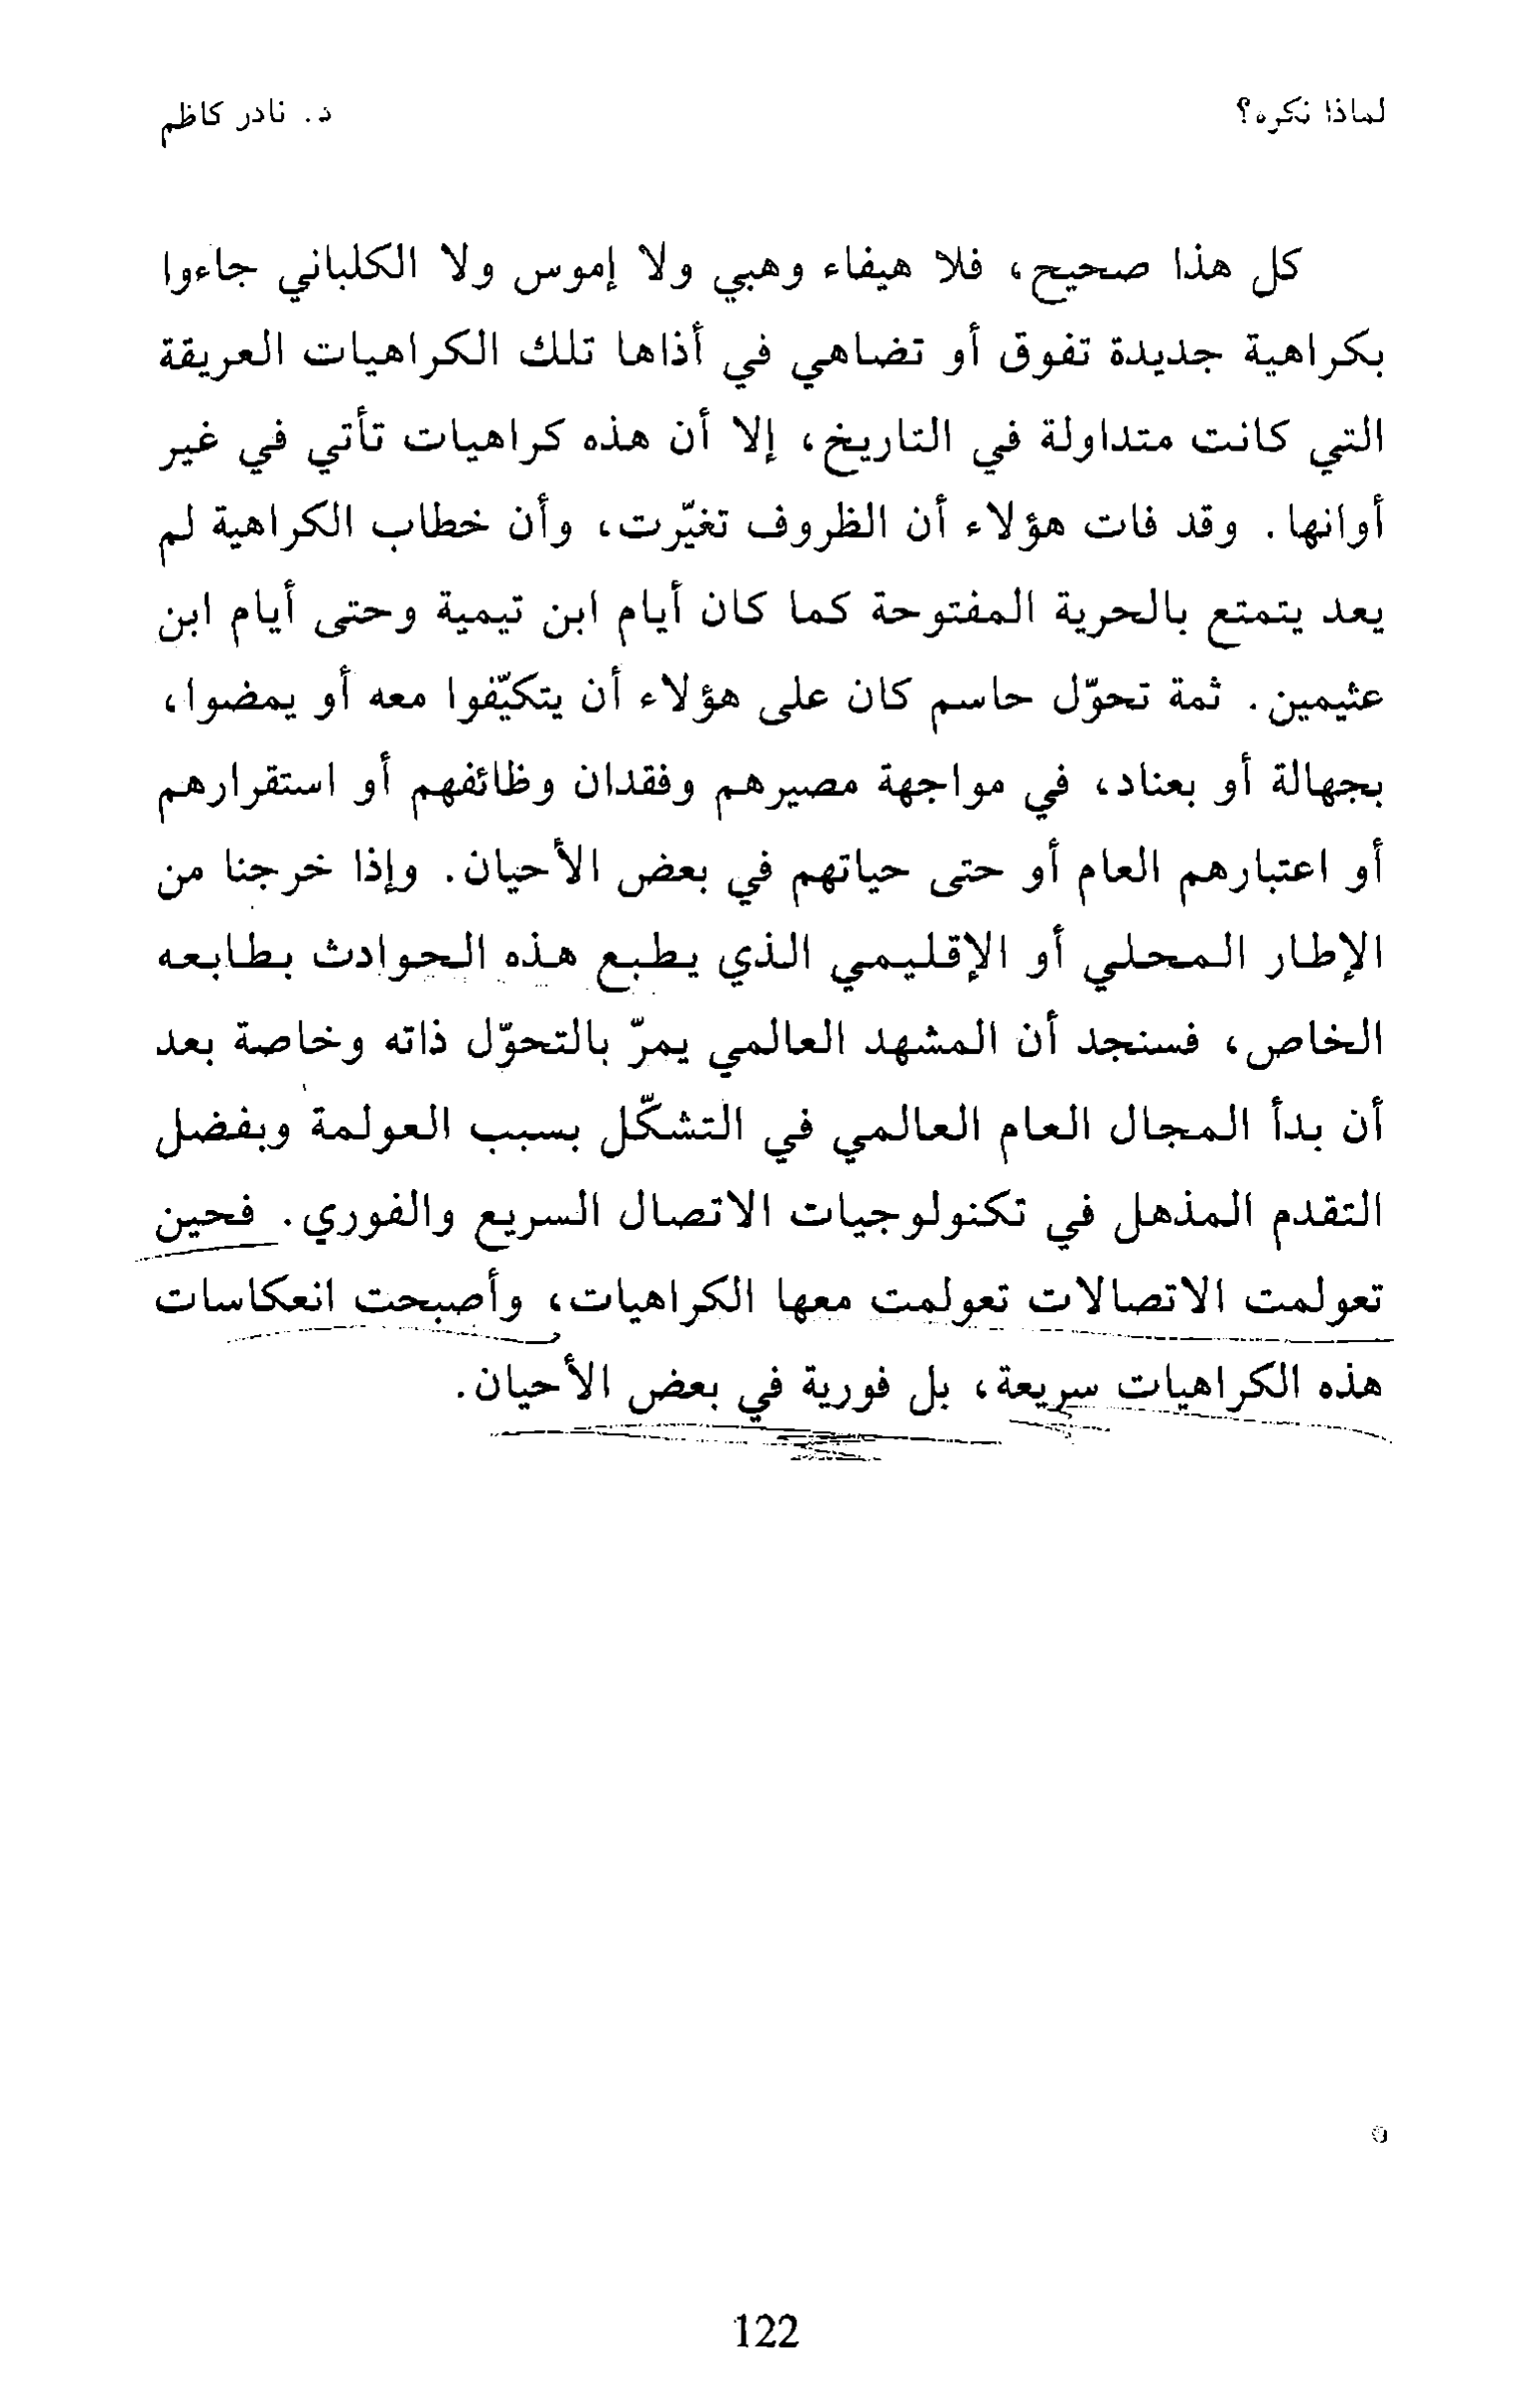 لماذا نكره؟
د. نادر كاظم
كل هذا صحيح، فلا هيفاء وهبي ولا إموس ولا الكلباني جاءوا
بكراهية جديدة تفوق أو تضاهي في أذاها تلك الكراهيات العريقة
التي كانت متداولة في التاريخ، إلا أن هذه كراهيات تأتي في غير
أوانها. وقد فات هؤلاء أن الظروف تغيّرت، وأن خطاب الكراهية لم
يعد يتمتع بالحرية المفتوحة كما كان أيام ابن تيمية وحتى أيام ابن
عثيمين. ثمة تحوّل حاسم كان على هؤلاء أن يتكيّفوا معه أو يمضوا،
بجهالة أو بعناد، في مواجهة مصيرهم وفقدان وظائفهم أو استقرارهم
أو اعتبارهم العام أو حتى حياتهم في بعض الأحيان. وإذا خرجنا من
الإطار المحلي أو الإقليمي الذي يطبع هذه الحوادث بطابعه
الخاص، فسنجد أن المشهد العالمي يمرّ بالتحوّل ذاته وخاصة بعد
أن بدأ المجال العام العالمي في التشكّل بسبب العولمة وبفضل
التقدم المذهل في تكنولوجيات الاتصال السريع والفوري. فحين
تعولمت الاتصالات تعولمت معها الكراهيات، وأصبحت انعكاسات
هذه الكراهيات سريعة، بل فورية في بعض الأحيان.
122